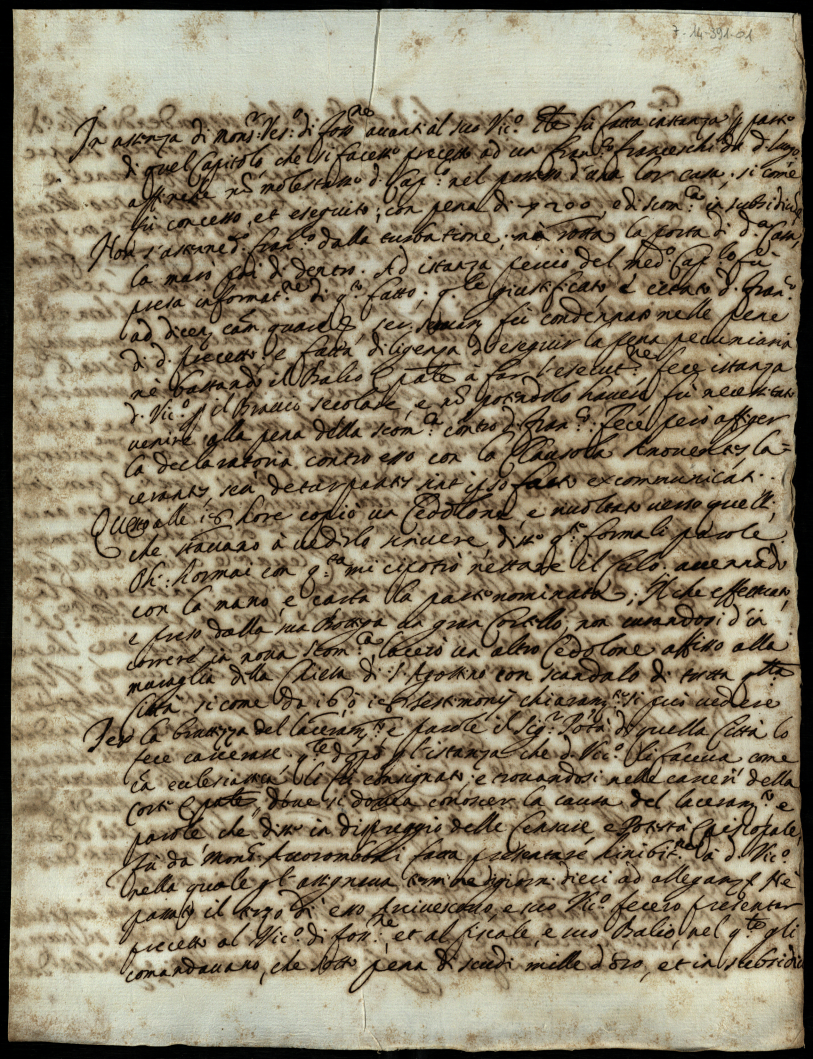 7-14-391-01
In assenza di Mons.r Ves.o di Foss.ne avanti al suo Vic.o G̃te fù fatta instanza p parte
di quel Capitolo che si facesse precetto ad un Fran.co Franceschi di d. luogo
affinche nõ molestasse d. Cap.o nel possesso d'una lor casa, si come
fù concesso, et eseguito, con pena di 200, e di scom.ca in subsidium
Non s'astenne d. Fran.co dalla turbatione, mà rotta la porta di d.a Casa,
la murò poi di dentro. Ad istanza perciò del med.o Cap.lo fù
presa informat.ne di q.to fatto, q.le giustificato e citato d. Fran.co
ad dicen. cām quare &. fù condennato nelle pene
di d. precetto, e fatta diligenza d'eseguir la pena pecuniaria
nè bastando il Balio à far l'esecut.ne fece istanza
d. Vic.o p il Braccio secolare, e nõ potendolo havere fù necessitato
venire alla pena della scom.ca contro d. Fran.co. Fece però affiger
la declaratoria contro esso con la Clausola Amoventes, la=
cerantes, seu deturpantes sint ipso facto excommunicati.
Questo alle 18 hore copiò un Cedolone, e voltato verso quelli,
che stavano à vederlo scrivere disse q.te formali parole.
Oh: hormai con q.ta mi ci potrò nettare il Culo. accennãdo
con la mano e carta la parte nominata; Il che effettuò,
e preso dalla sua Bottega un gran Coltello, non curandosi d'in
correre in nova scom.ca lacerò un altro Cedolone affisso alla
muraglia della Chiesa di S. Agostino con scandalo di tutta q.lla
Città, si come da 16 ò testimonij chiaram.te si può vedere
Per la bruttezza del laceram.to e parole il Sig.r Potà di quella Città lo
fece carcerare, q.le doppò p l'istanza che d. Vic.o li faceva come
cã ecclesiastica li fù consignato, e trovandosi nelle carceri della
Corte dove si doveva conoscer la causa del laceram.to e
parole che disse in dispreggio delle Censure, e Potestà Episcopale,
fù da Mons.r Accoromboni fatta presentare Inibit.ne à d. Vic.o
nella quale gl'assignava termine di giorni dieci ad allegand. Nè
passato il terzo dì esso Arcivescovo, e suo Vic.o fecero presentar
precetto al Vic.o di Foss.ne, et al fiscale, e suo Balio, nel q.le gli
comandavano, che sotto pena di scudi mille d'oro, et in subsidiũ